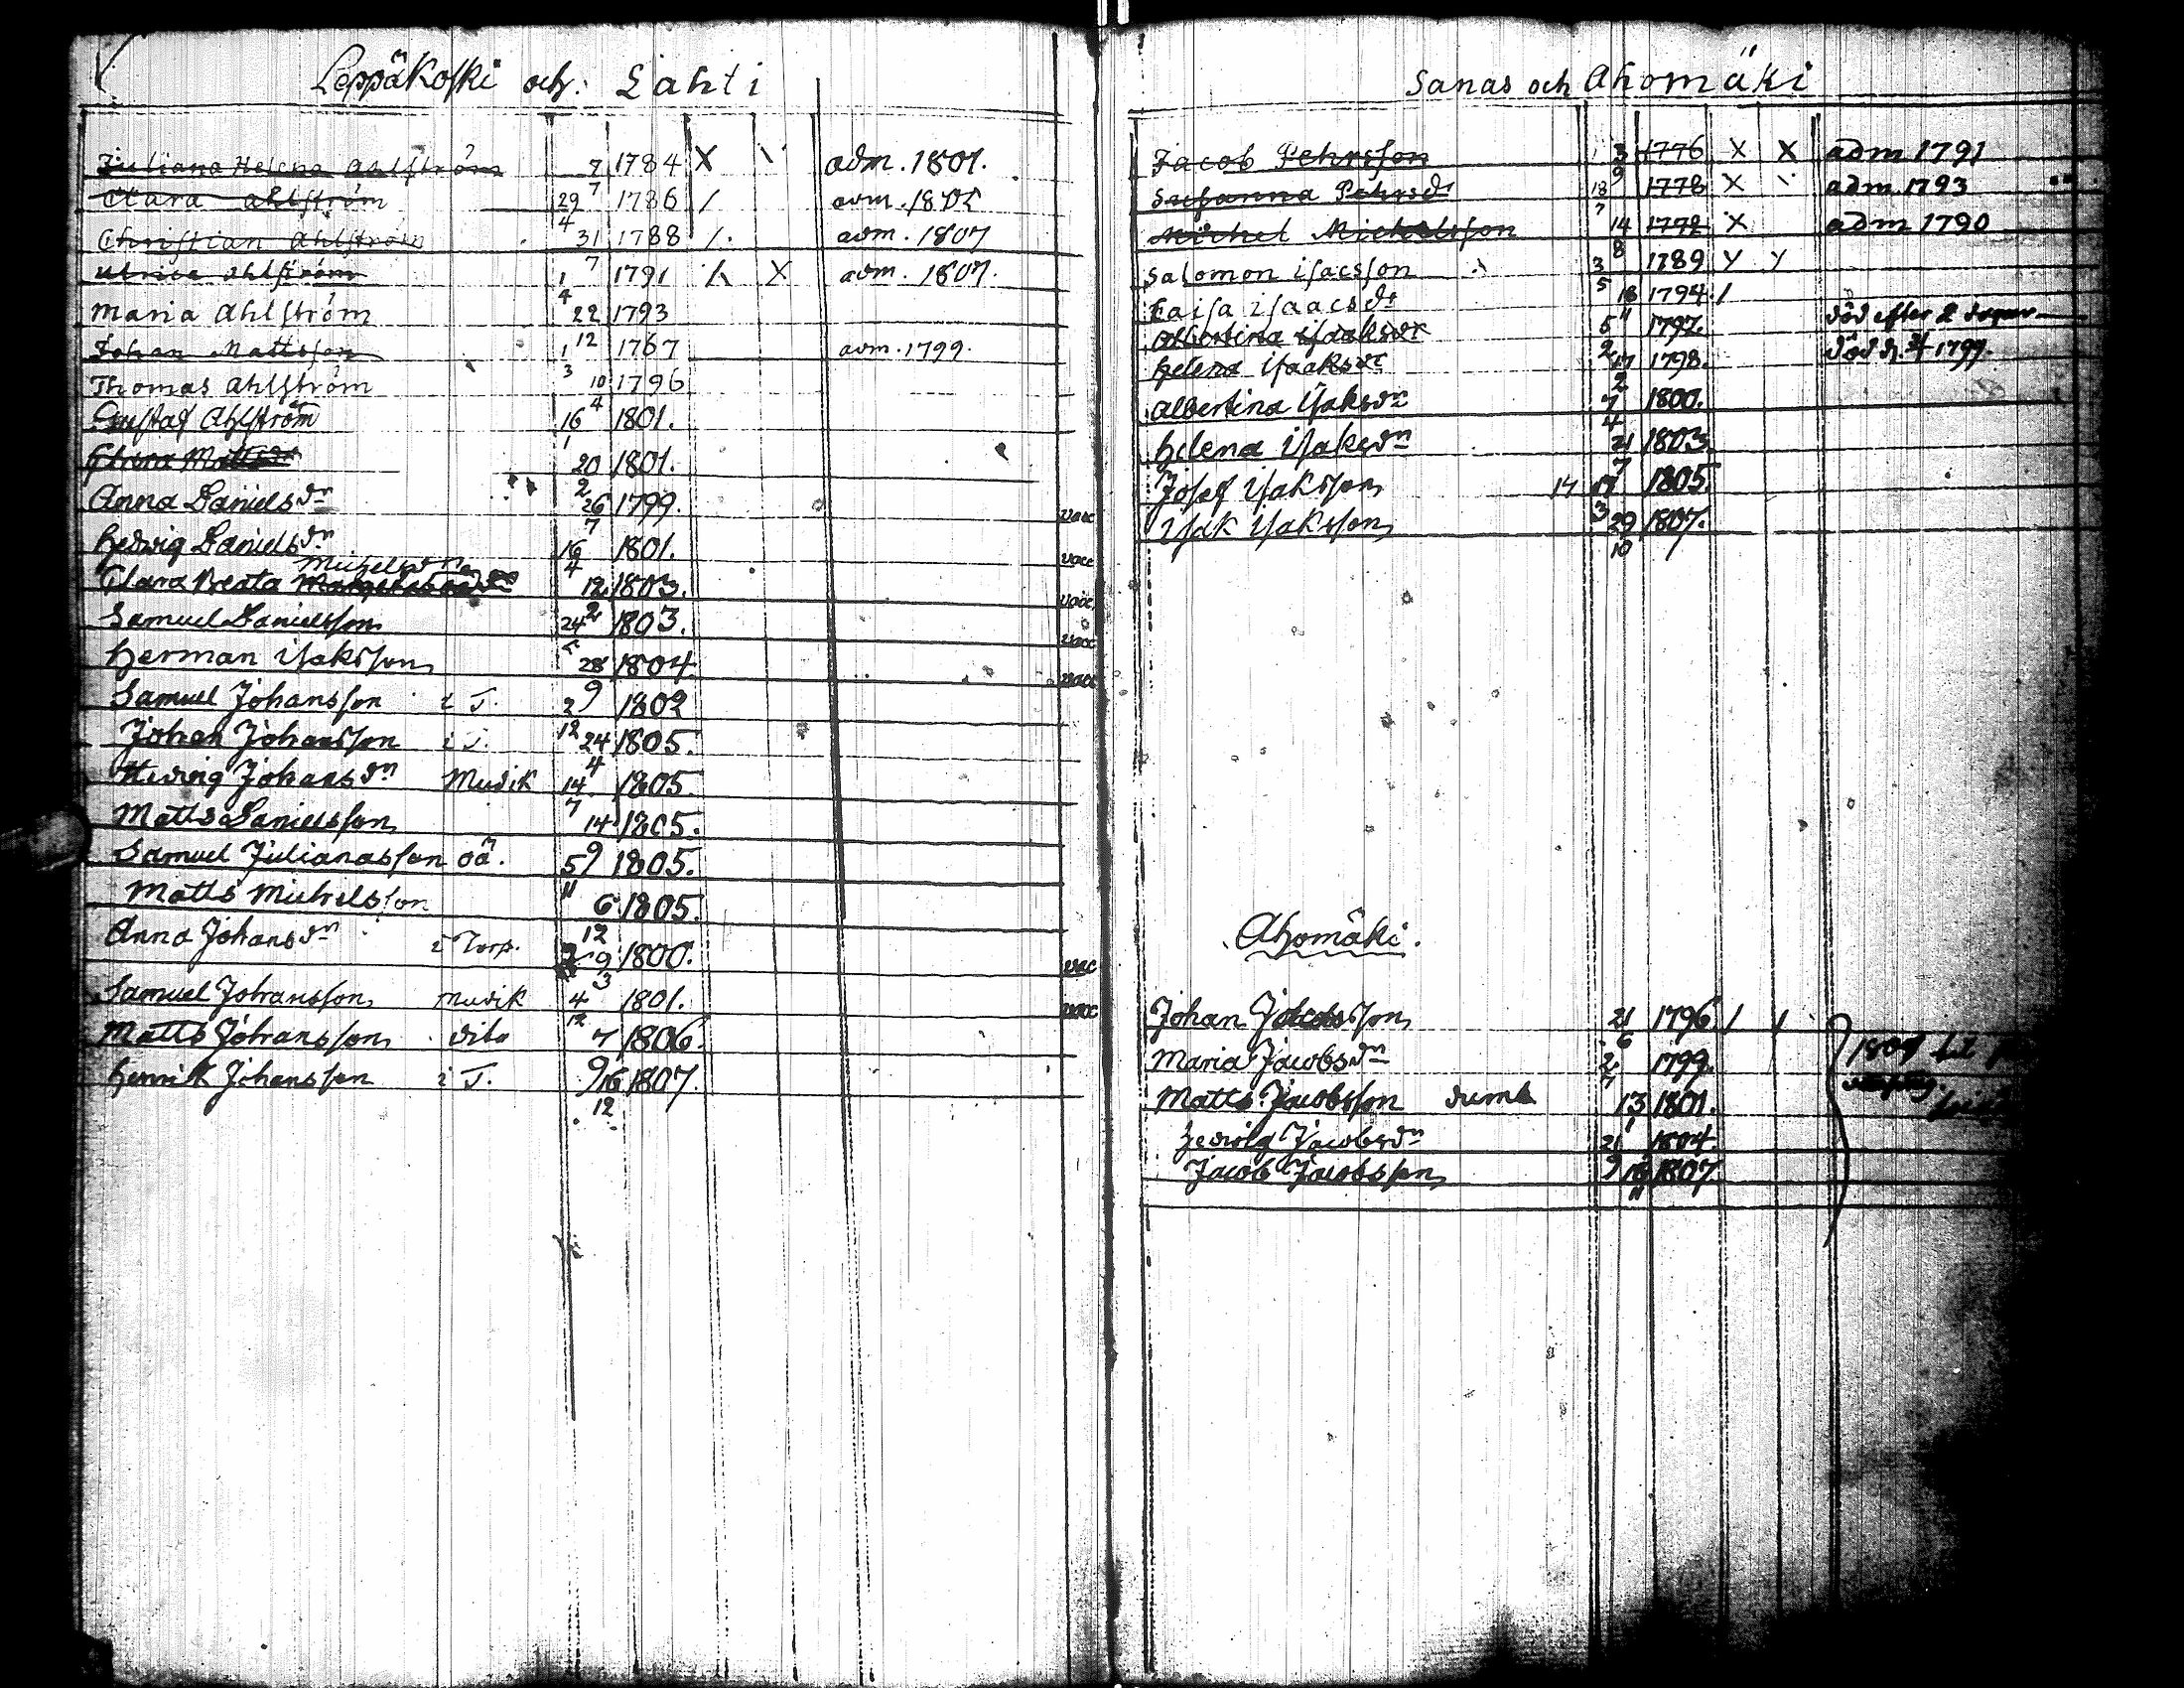 Leppäkoski och: Lahti
Juliana Helena Ahlström 7 1784 X \ adm. 1801.
Clara Ahlström 29 7 1786 / adm. 1802
Christian Ahlström 4 31 1788 /. adm. 1807
Ulrica Ahlström 1 7 1791 X X adm. 1807.
Maria Ahlström 4 22 1793
Johan Mattsson 1 12 1767 adm. 1799.
Thomas Ahlström 3 10 1796
Gustaf Ahlström 16 4 1801.
1 20 1801.
Anna Danielsdr 2 26 1799. vacc
Hedwig Danielsdr 7 16 1801. vacc
Michelsdr
Clara Beata 4 12 1803. vacc
Samuel Danielsson 24 2 1803. vacc
Herman Isaksson 28 1804 vacc
Samuel Johansson i T. 2 9 1802
Johan Johansson i T. 12 24 1805.
Hedvig Johansdr Mudik 14 4 1805.
Matts Danielsson 7 14 1805.
Samuel Julianasson oä. 5 9 1805.
Matts Michelsson 11 6 1805.
Anna Johansdr i Torp. 12 9 1800. vac
Samuel Johansson mudik 4 3 1801. vacc
Matts Johansson dito 12 7 1806.
Henrik Johansson i T. 9 16 1807.
12
Sanas och Ahomäki
Jacob Pehrsson 3 1776 X X adm 1791
Susanna Pehrsdr 18 9 1778 X \ adm. 1793
Michel Michelsson 7 14 1772 X adm 1790
Salomon Isacsson 3 8 1789 Y Y
Caisa Isaacsdr 5 18 1794. /
Albertina Isaaksdr 5 11 1797. död efter 2
Helena Isaaksdr 2 17 1798. död d. 1799.
Albertina Isaksdr 2 7 1800.
Helena Isaksdr 4 21 1803.
Josef Isaksson 14 7 1805.
Isak Isaksson 3 29 1807.
10
Ahomäki.
Johan Jacobsson 21 1796. / /
Maria Jacobsdr 6 2 1799. 1807 til
Matts Jacobsson dumb 7 13 1801.
Hedvig Jacobsdr 21 1 1804.
Jacob Jacobsson 9 18 1807.
11